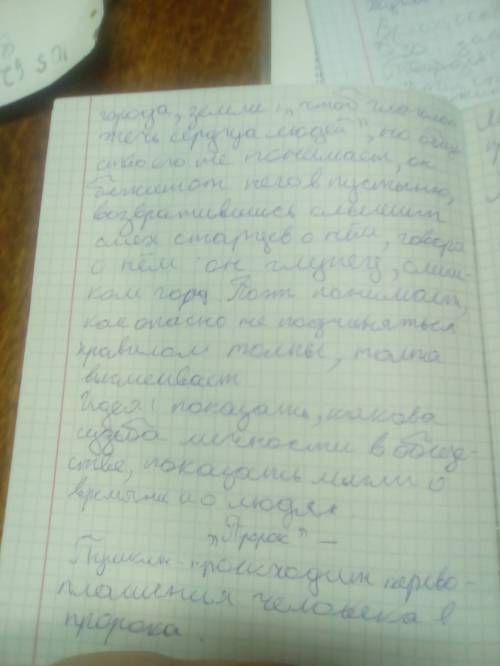 города, земли, „чтоб глаголом
жечь сердца людей", но обще
ство его не понимает, он
бежит от него в пустыню,
возвратившись слышит
смех старцев о нём, говоря
о нём он глупец, слиш
ком горд. Поэт понимает,
как опасно не подчиняться
правилам толпы, толпа
высмеивает
Идея: показать, какова
судьба личности в общ-
стве, показать мысли о
времени и о людях
„Пророк" –
Пушкин - происходит перево-
площения человека в
пророка.